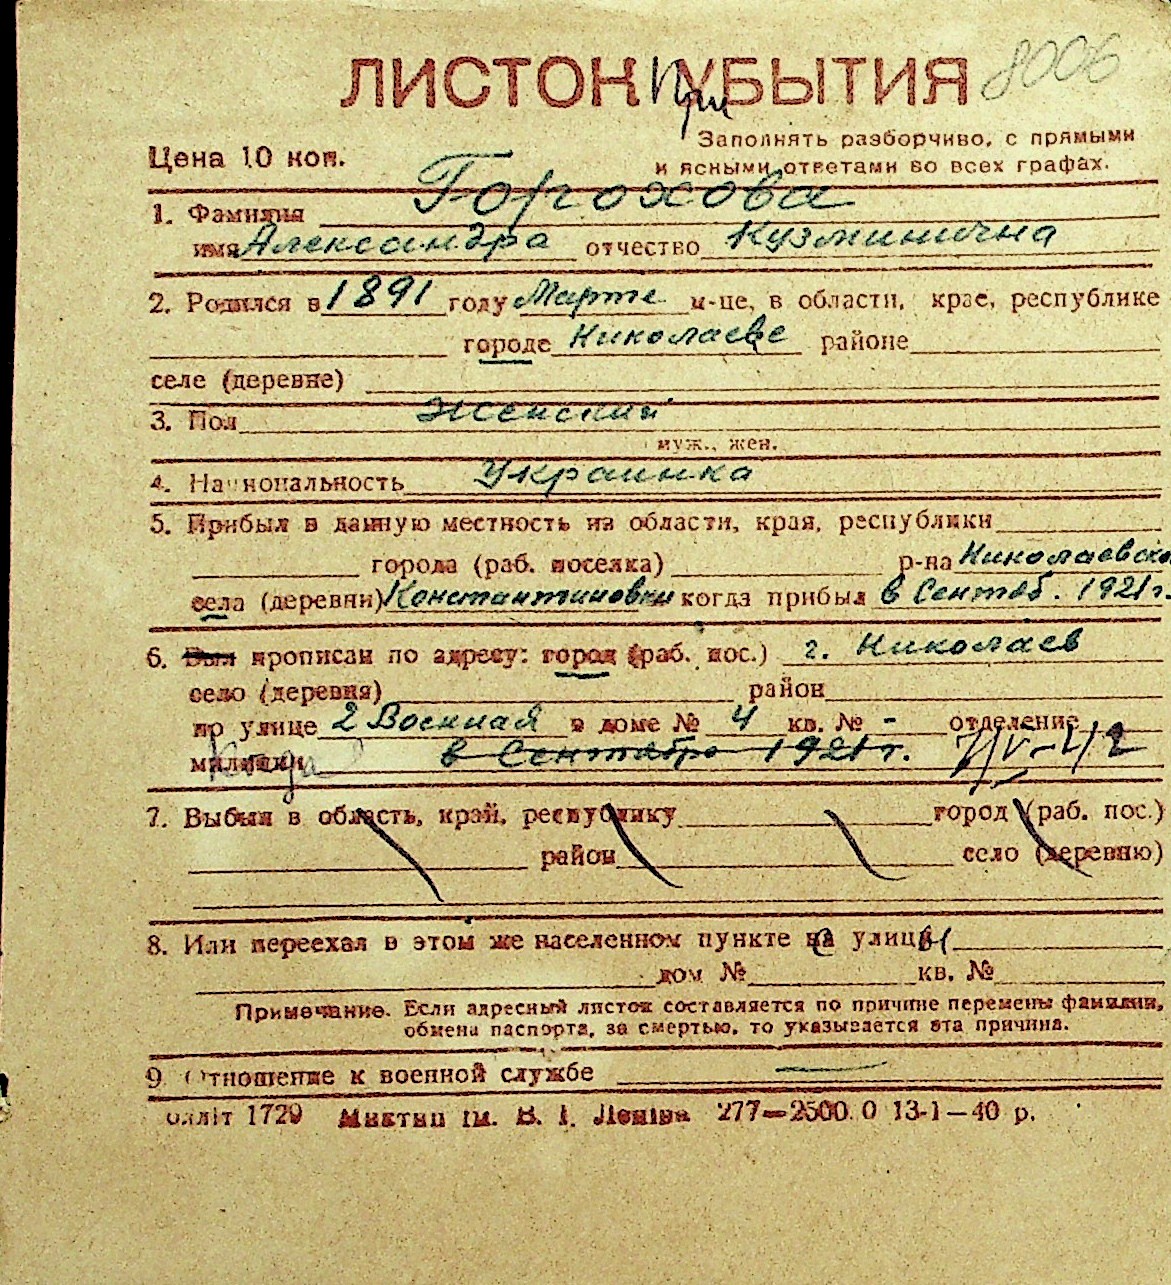 ЛИСТОК УБЫТИЯ 8006
При
Заполнять разборчиво, с прямыми
Цена 10 коп.
и ясными ответами во всех графах.
1. Фамилия Горохова
имя Александра отчество Кузминична
2. Родился в 1891 году Марте м-це, в области, крае, республике
городе Николаеве районе
селе (деревне)
3. Пол Женский
муж., жен.
4. Национальность Украинка
5. Прибыл в данную местность из области, края, республики
города (раб. поселка) р-на Николаевско
села (деревни) Константиновки когда прибыл в Сентяб. 1921 г.
6. Был прописан по адресу: город (раб. пос.) г. Николаев
село (деревня) район
по улице 2 Военная в доме № 4 кв. № - отделение
милиции Когда в Сентябре 1921 г.
7. Выбыл в область, край, республику город (раб. пос.)
район село (деревню)
8. Или переехал в этом же населенном пункте с улицы
дом № кв. №
Примечание. Если адресный листок составляется по причине перемены фамилии,
обмена паспорта, за смертью, то указывается эта причина.
9. Отношение к военной службе —
Облліт 1729 Миктип ім. В. І. Леніна 277—2500.0 13-1—40 р.